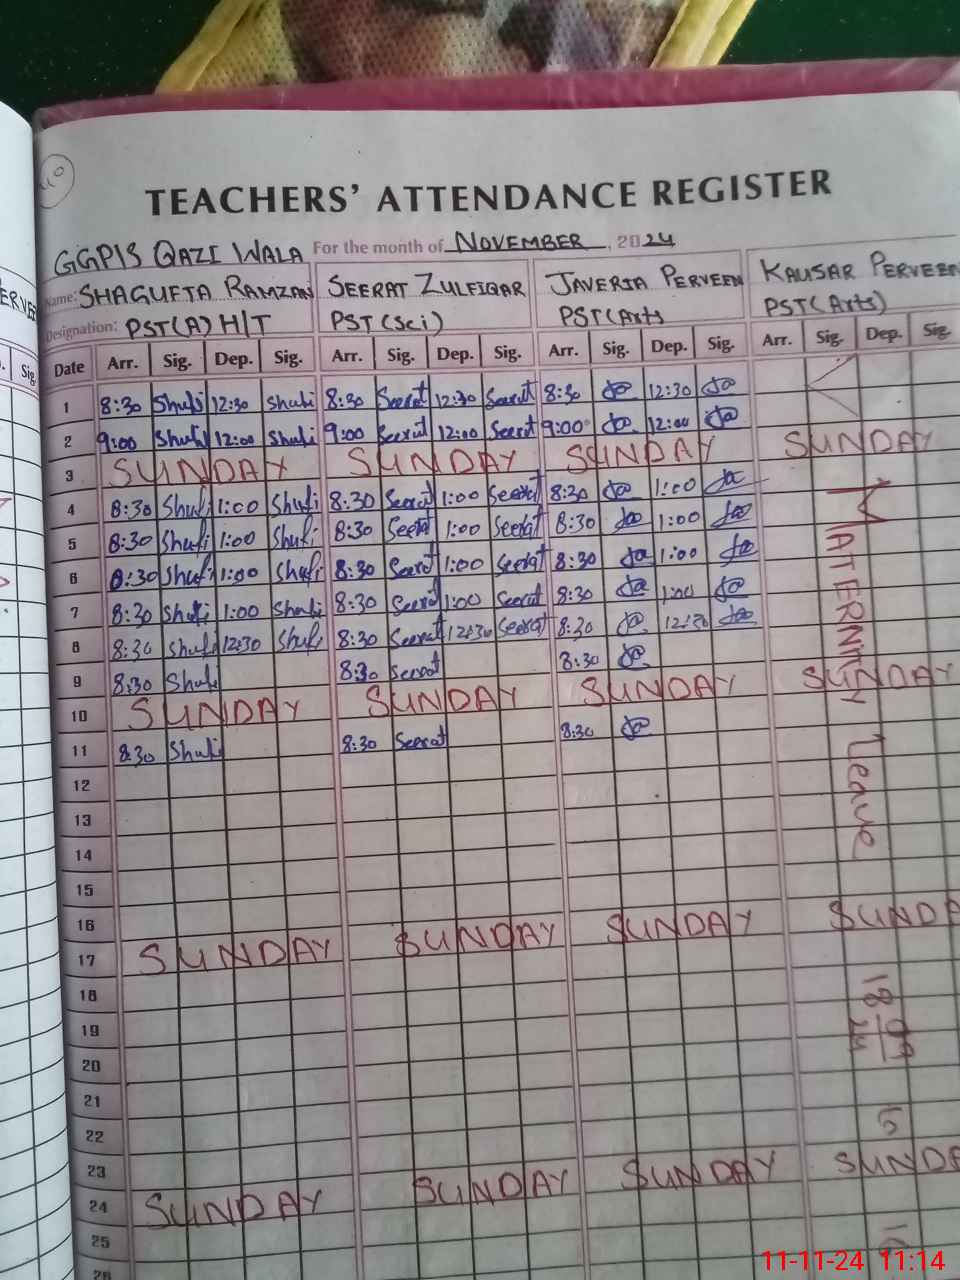 TEACHERS' ATTENDANCE REGISTER
GGPIS QAZI WALA For the month of NOVEMBER, 2024
Name: SHAGUFTA RAMZAN SEERAT ZULFIQAR JAVERIA PERVEEN KAUSAR PERVEEN
Designation: PST(A) H/T PST(Sci) PST(Arts PST(Arts)
Date Arr. Sig. Dep. Sig. Arr. Sig. Dep. Sig. Arr. Sig. Dep. Sig. Arr. Sig. Dep. Sig.
1 8:30 Shufi 12:30 Shufi 8:30 Seerat 12:30 Seerat 8:30 12:30
2 9:00 Shufi 12:00 Shufi 9:00 Seerat 12:00 Seerat 9:00 12:00
3 SUNDAY SUNDAY SUNDAY SUNDAY
4 8:30 Shufi 1:00 Shufi 8:30 Seerat 1:00 Seerat 8:30 1:00
5 8:30 Shufi 1:00 Shufi 8:30 Seerat 1:00 Seerat 8:30 1:00
6 8:30 Shufi 1:00 Shufi 8:30 Seerat 1:00 Seerat 8:30 1:00
7 8:30 Shufi 1:00 Shufi 8:30 Seerat 1:00 Seerat 8:30 1:00
8 8:30 Shufi 12:30 Shufi 8:30 Seerat 12:30 Seerat 8:30 12:30
9 8:30 Shufi 8:30 Seerat 8:30
10 SUNDAY SUNDAY SUNDAY SUNDAY
11 8:30 Shufi 8:30 Seerat 8:30
MATERNITY Leave
12
13
14
15
16
17 SUNDAY SUNDAY SUNDAY SUNDA
18
19
20
21
22
23
24 SUNDAY SUNDAY SUNDAY SUNDA
25
26
11-11-24 11:14